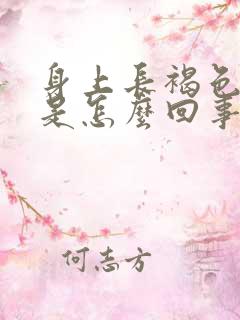 身上長褐色
是怎麼回事
何志方